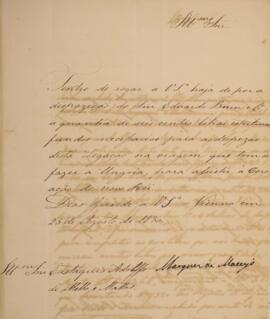 Illmo. Snr.
Tenho de rogar a V.S. haja de por a
disposição do Snr. Eduardo
a quantia de seis centas Libras esterlinas
fundos necessarios para as despezas
desta Legação na viagem que tem a
fazer a Ungria, para assistir a Coro
ação de novo Rei.
Deos Guarde a V.Sa. Vienna em
25 de Agosto de 1830
Illmo. Snr. Eustaquio Adolfo
de Mello e Mattos
Marquez de Maceyó